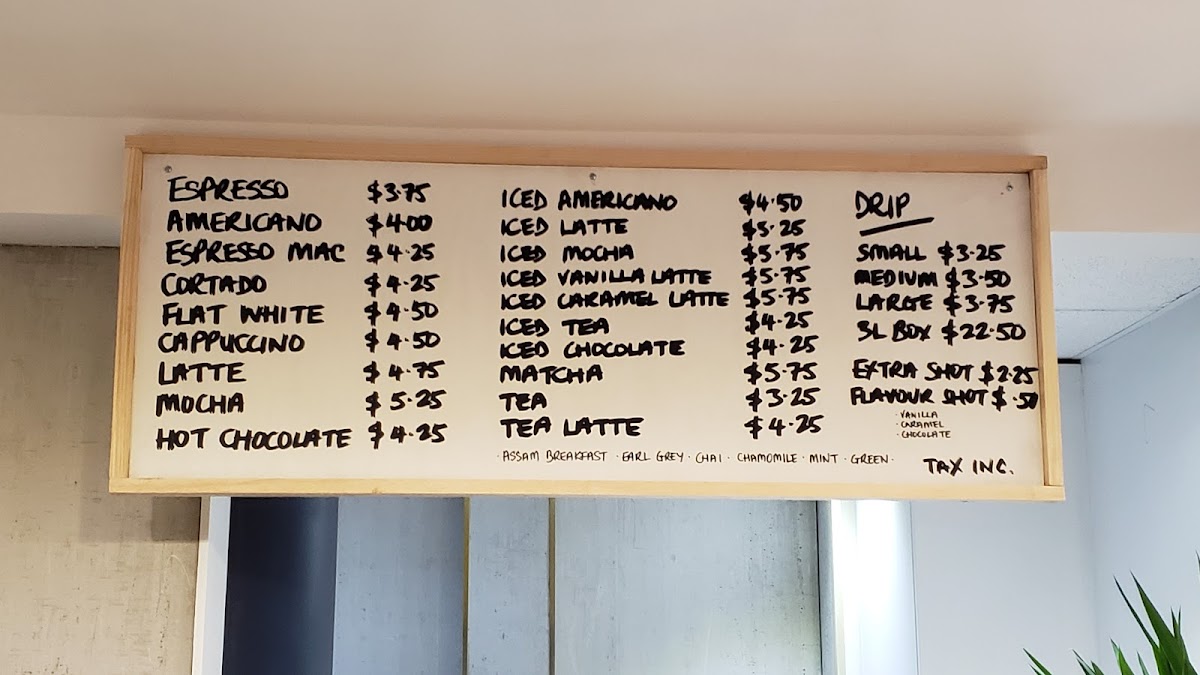 ESPRESSO $3.75
AMERICANO $4.00
ESPRESSO MAC $4.25
CORTADO $4.25
FLAT WHITE $4.50
CAPPUCCINO $4.50
LATTE $4.75
MOCHA $5.25
HOT CHOCOLATE $4.25
ICED AMERICANO $4.50
ICED LATTE $5.25
ICED MOCHA $5.75
ICED VANILLA LATTE $5.75
ICED CARAMEL LATTE $5.75
ICED TEA $4.25
ICED CHOCOLATE $4.25
MATCHA $5.75
TEA $3.25
TEA LATTE $4.25
· ASSAM BREAKFAST · EARL GREY · CHAI · CHAMOMILE · MINT · GREEN ·
DRIP
SMALL $3.25
MEDIUM $3.50
LARGE $3.75
3L BOX $22.50
EXTRA SHOT $2.25
FLAVOUR SHOT $.50
· VANILLA
· CARAMEL
· CHOCOLATE
TAX INC.